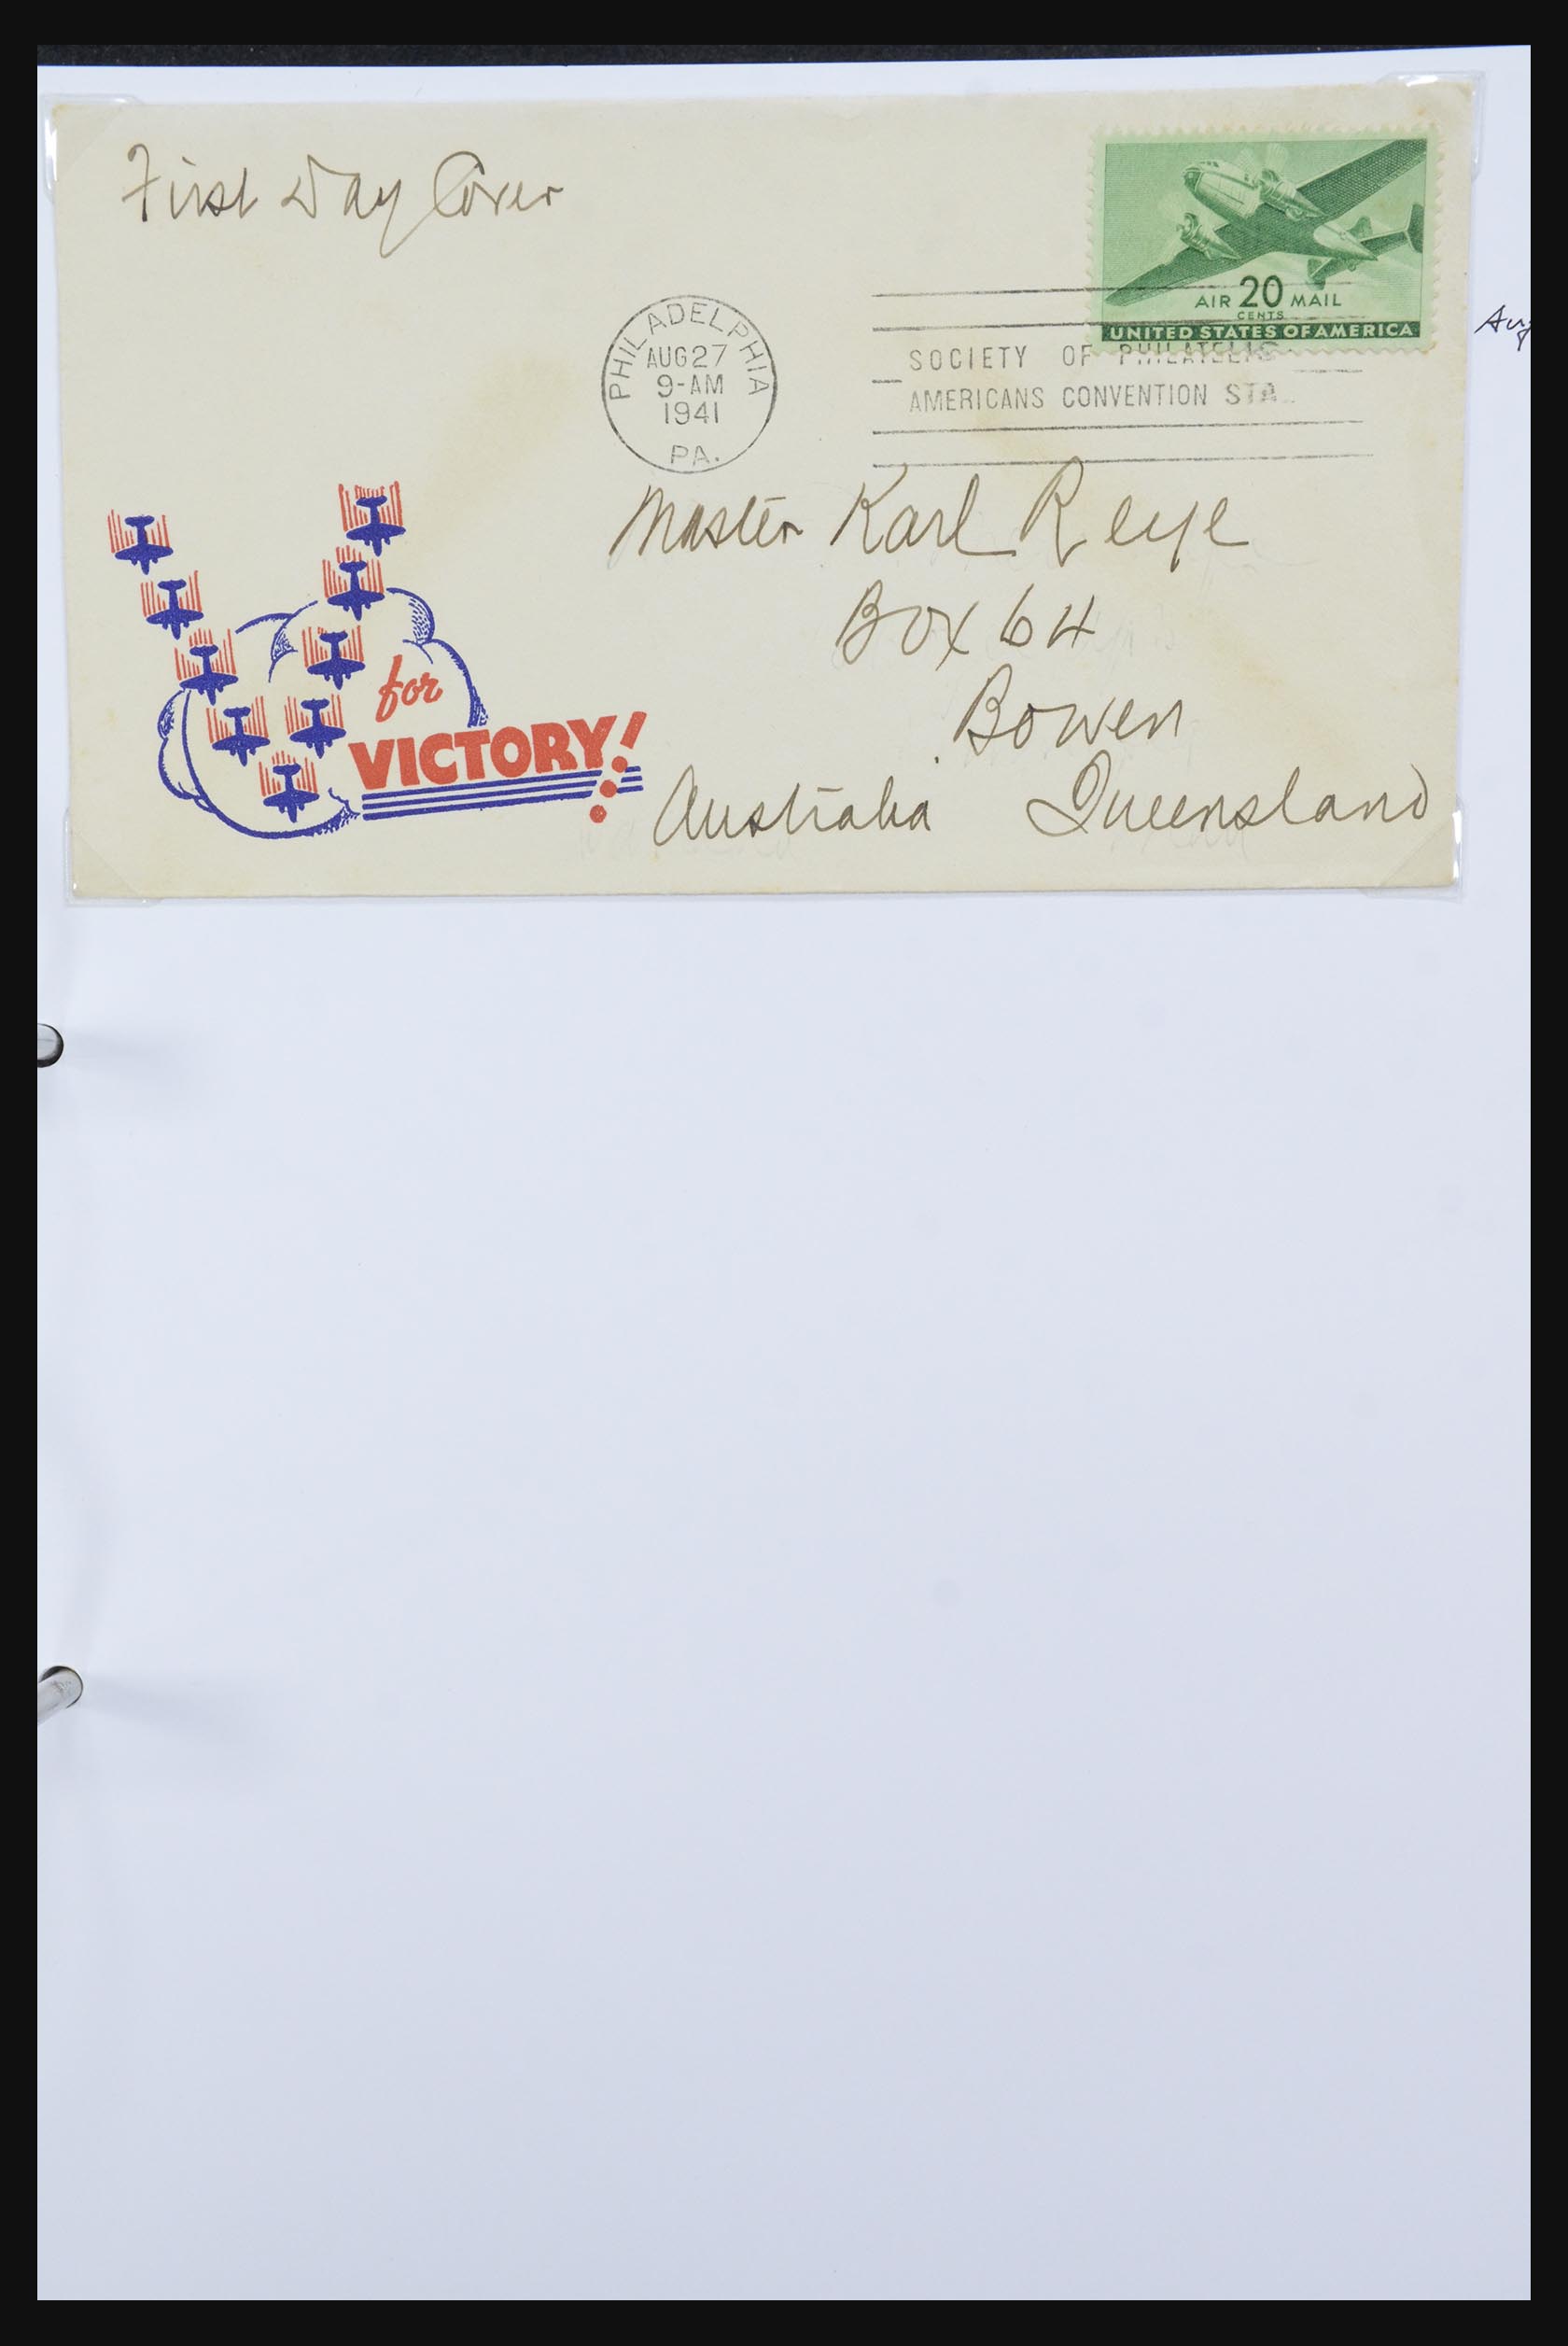 First Day Cover
AIR 20 MAIL
CENTS
UNITED STATES OF AMERICA
Aug
PHILADELPHIA
AUG 27
9-AM
1941
PA.
SOCIETY OF PHILATELIC
AMERICANS CONVENTION STA.
Master Karl Reye
Box 64
Bowen
Australia Queensland
for
VICTORY!